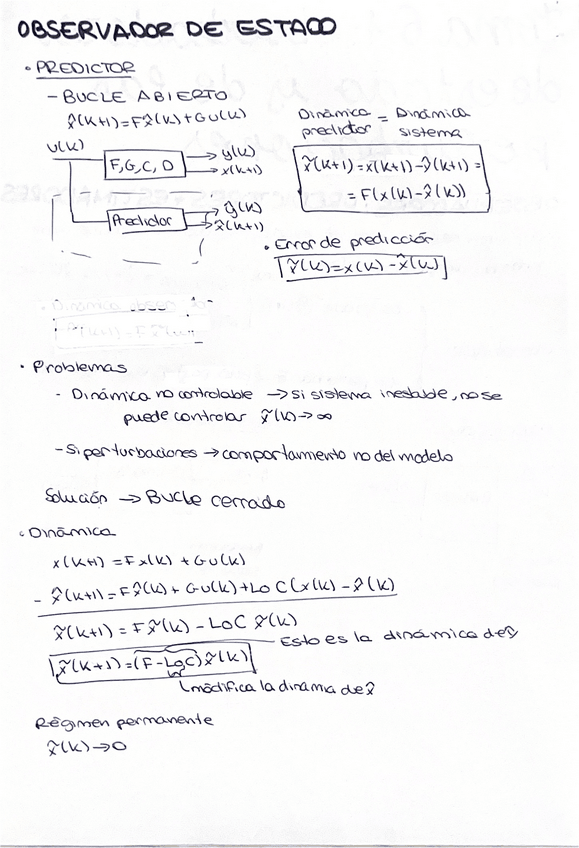 OBSERVADOR DE ESTADO
· PREDICTOR
- BUCLE ABIERTO
x̂(k+1)=Fx̂(k)+Gu(k)
Dinámica predictor = Dinámica sistema
u(k)
F,G,C,D
y(k)
x(k+1)
Predictor
ŷ(k)
x̂(k+1)
x̃(k+1)=x(k+1)-x̂(k+1)=
=F(x(k)-x̂(k))
· Error de predicción
x̃(k)=x(k)-x̂(k)
· Problemas
- Dinámica no controlable → si sistema inestable, no se
puede controlar x̃(k)→∞
- Si perturbaciones → comportamiento no del modelo
Solución → Bucle cerrado
· Dinámica
x(k+1)=Fx(k)+Gu(k)
- x̂(k+1)=Fx̂(k)+Gu(k)+LoC(x(k)-x̂(k)
x̃(k+1)=Fx̃(k)-LoC x̃(k)
Esto es la dinámica de x̂
x̃(k+1)=(F-LoC)x̃(k)
modifica la dinama de x̂
Régimen permanente
x̃(k)→0